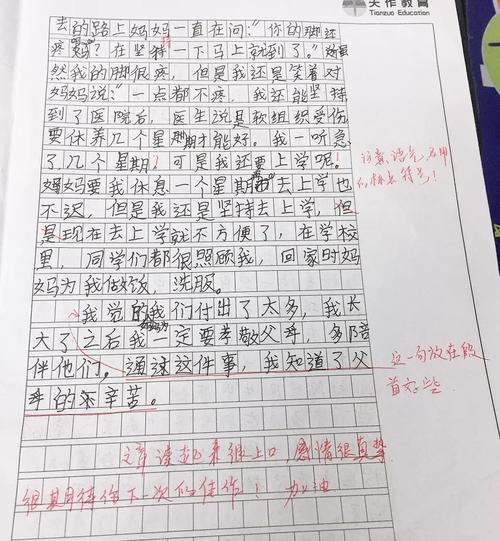 天作教育
Tianzuo Education
去的路上妈妈一直在问:“你的脚还
疼吗?在坚持一下马上就到了。”虽
然我的脚很疼,但是我还是笑着对
妈妈说:“一点都不疼,我还能坚持
到了医院后,医生说是软组织受伤
要休养几个星期才能好。我一听急
了几个星期?可是我还要上学呢!
妈妈要我休息一个星期再去上学也
不迟,但是我还是坚持去上学,但
是现在去上学就不方便了,在学校
里,同学们都很照顾我,回家时妈
妈为我做好饭,洗服。
我觉的我们付出了太多,我长
大了之后我一定要孝敬父母,多陪
伴他们。通过这件事,我知道了父
母的辛苦。
注意语气,不用
的标点符号!
这一句放在段
首
文章读起来很上口,感情很真挚
很期待你下一次的佳作!加油